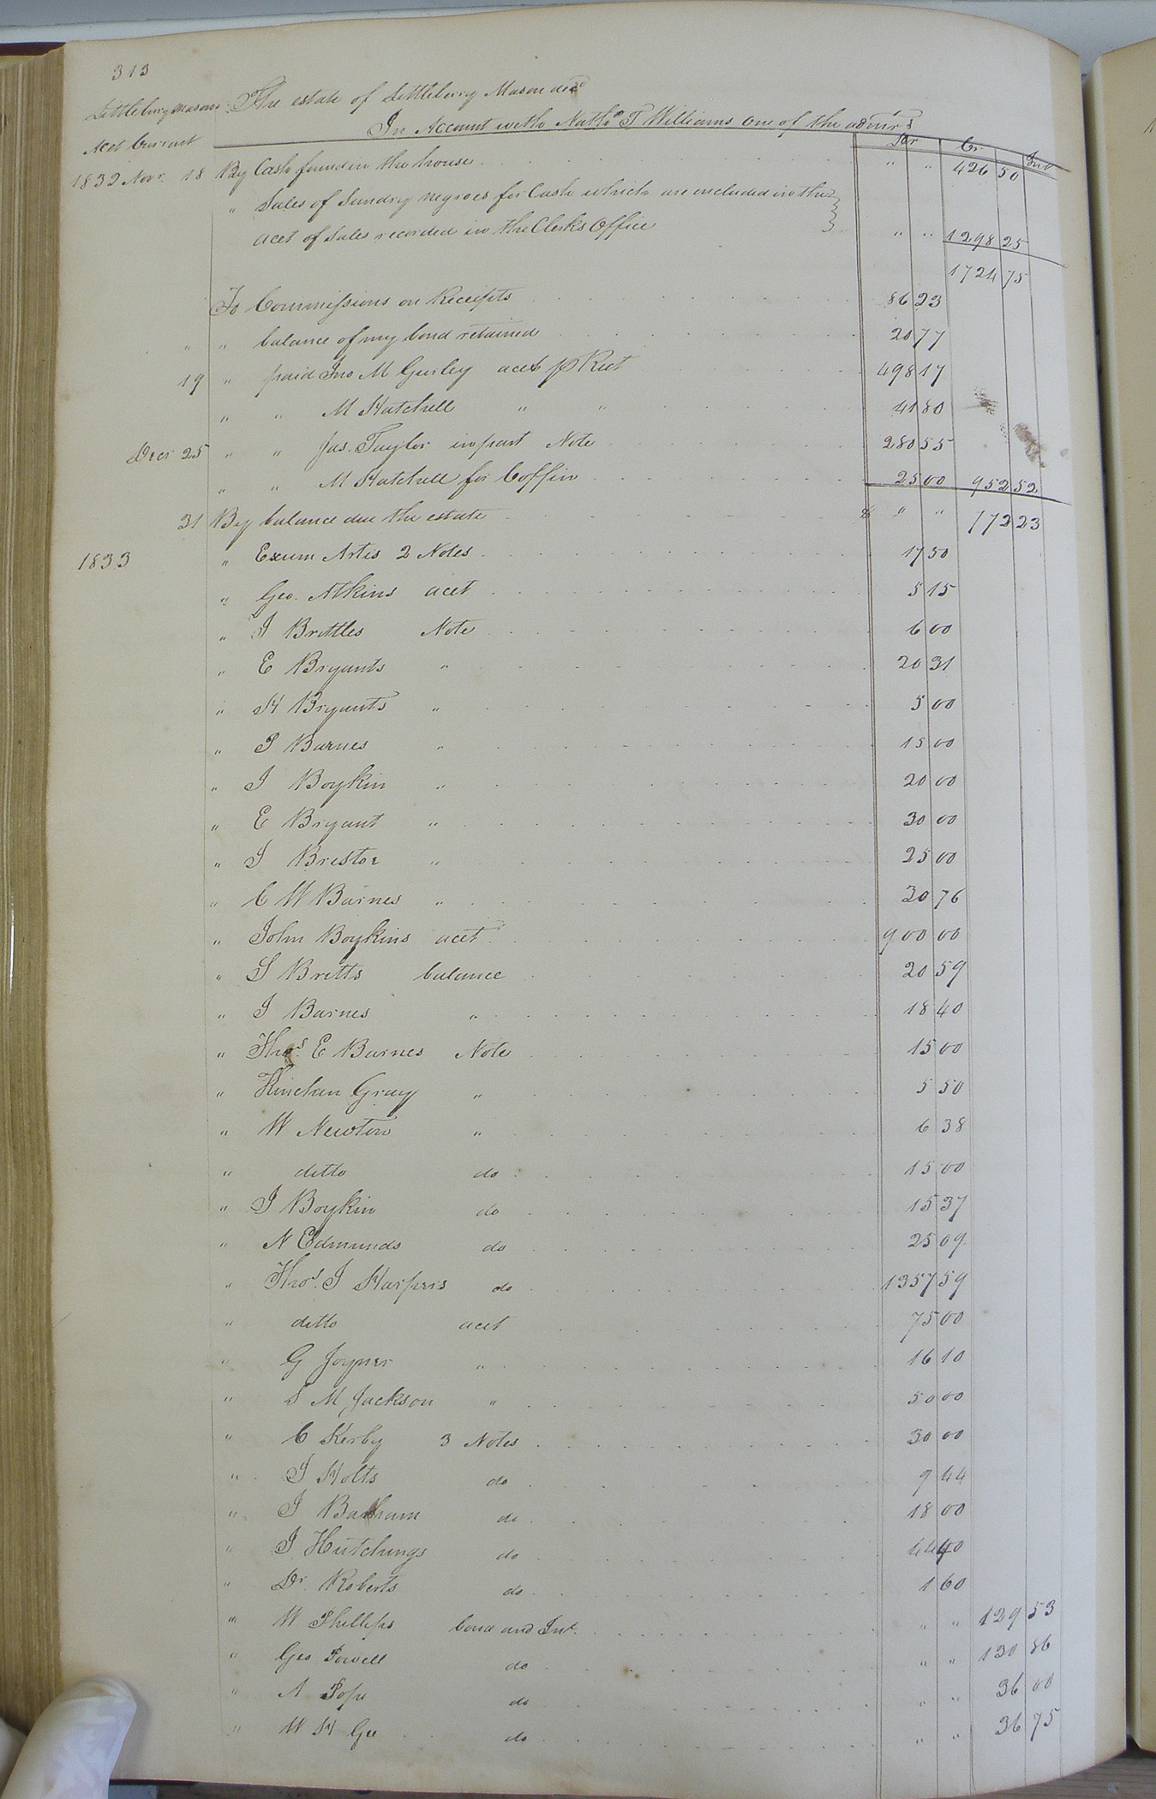 313
Littlebury Masons The estate of Littleberry Mason decd
In Account with Nathl T Williams one of the admrs
Acct Current Dr Cr Int
1832 Novr 18 By Cash found in the house " " 426 50
" Sales of Sundry negroes for Cash which are included in the
acct of Sales recorded in the Clerks Office " " 1298 25
1724 75
To Commissions on Receipts 86 23
" " balance of my bond retained 20 77
19 " paid Jno M Gurley acct p Rect 498 17
" " M Hatchell " " 41 80
Decr 25 " " Jas. Taylor in part Note 280 55
" " M Hatchell for Coffin 25 00 952 52
31 By balance due the estate " " 772 23
1833 " Exum Artis 2 Notes 17 50
" Geo. Atkins acct 5 15
" J Brittles Note 6 00
" E Bryants " 20 31
" H Bryants " 5 00
" J Barnes " 15 00
" J Boykin " 20 00
" E Bryant " 30 00
" J Brister " 25 00
" C W Barnes " 30 76
" John Boykins acct 900 00
" S Britts balance 20 59
" J Barnes " 18 40
" Thos E Barnes Note 15 00
" Hinchan Gray " 5 50
" W Newton " 6 38
" ditto do 15 00
" J Boykin do 15 37
" N Edmunds do 25 09
" Thos. J Harpers do 1357 59
" ditto acct 75 00
" G Joyner " 16 10
" S M Jackson " 50 00
" C Kerby 3 Notes 30 00
" J Holts do 9 44
" J Barham do 18 00
" J Hutchings do 44 40
" Dr Roberts do 1 60
" W Phillips bond and Int. " " 129 53
" Geo Powell do " " 130 86
" A Pope do " " 36 00
" W H Gee do " " 36 75